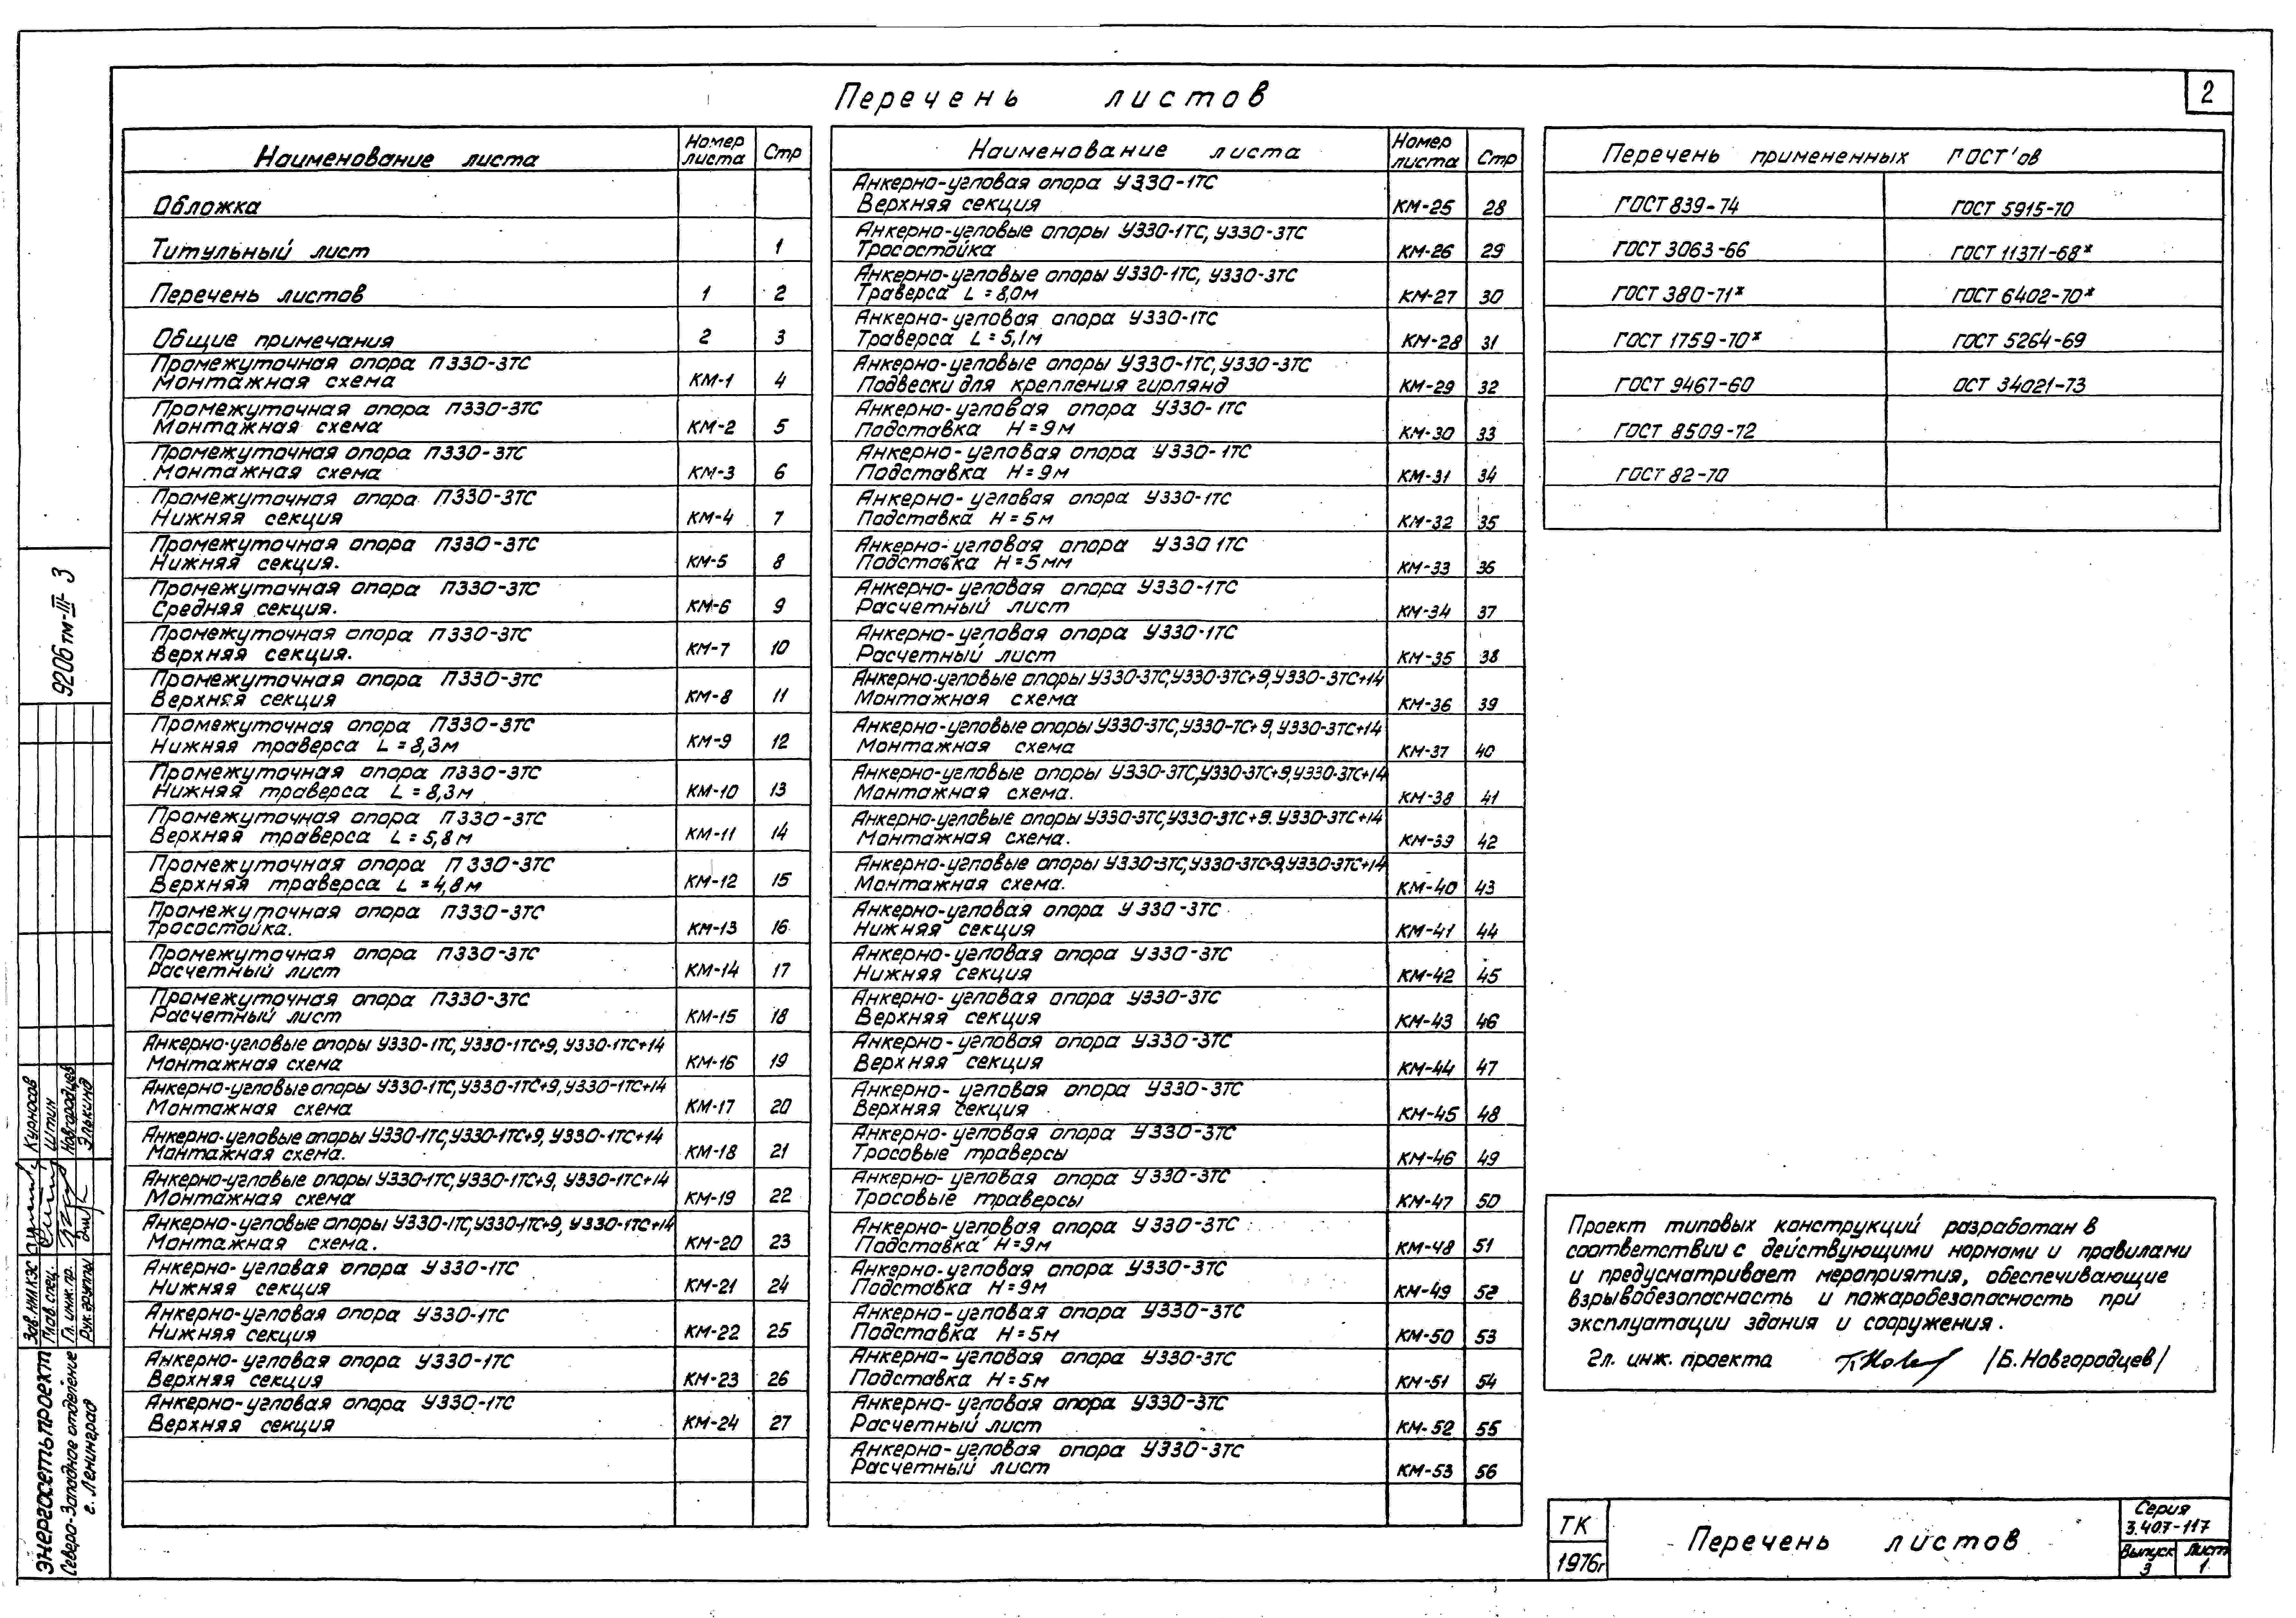 2
Перечень листов
Наименование листа Номер листа Стр
Обложка
Титульный лист 1
Перечень листов 1 2
Общие примечания 2 3
Промежуточная опора П330-3ТС
Монтажная схема КМ-1 4
Промежуточная опора П330-3ТС
Монтажная схема КМ-2 5
Промежуточная опора П330-3ТС
Монтажная схема КМ-3 6
Промежуточная опора П330-3ТС
Нижняя секция КМ-4 7
Промежуточная опора П330-3ТС
Нижняя секция. КМ-5 8
Промежуточная опора П330-3ТС
Средняя секция. КМ-6 9
Промежуточная опора П330-3ТС
Верхняя секция. КМ-7 10
Промежуточная опора П330-3ТС
Верхняя секция КМ-8 11
Промежуточная опора П330-3ТС
Нижняя траверса L = 8,3м КМ-9 12
Промежуточная опора П330-3ТС
Нижняя траверса L = 8,3м КМ-10 13
Промежуточная опора П330-3ТС
Верхняя траверса L = 5,8м КМ-11 14
Промежуточная опора П330-3ТС
Верхняя траверса L = 4,8м КМ-12 15
Промежуточная опора П330-3ТС
Тросостойка. КМ-13 16
Промежуточная опора П330-3ТС
Расчетный лист КМ-14 17
Промежуточная опора П330-3ТС
Расчетный лист КМ-15 18
Анкерно-угловые опоры У330-1ТС, У330-1ТС+9, У330-1ТС+14
Монтажная схема КМ-16 19
Анкерно-угловые опоры У330-1ТС, У330-1ТС+9, У330-1ТС+14
Монтажная схема КМ-17 20
Анкерно-угловые опоры У330-1ТС, У330-1ТС+9, У330-1ТС+14
Монтажная схема. КМ-18 21
Анкерно-угловые опоры У330-1ТС, У330-1ТС+9, У330-1ТС+14
Монтажная схема КМ-19 22
Анкерно-угловые опоры У330-1ТС, У330-1ТС+9, У330-1ТС+14
Монтажная схема. КМ-20 23
Анкерно-угловая опора У330-1ТС
Нижняя секция КМ-21 24
Анкерно-угловая опора У330-1ТС
Нижняя секция КМ-22 25
Анкерно-угловая опора У330-1ТС
Верхняя секция КМ-23 26
Анкерно-угловая опора У330-1ТС
Верхняя секция КМ-24 27
Наименование листа Номер листа Стр
Анкерно-угловая опора У330-1ТС
Верхняя секция КМ-25 28
Анкерно-угловые опоры У330-1ТС, У330-3ТС
Тросостойка КМ-26 29
Анкерно-угловые опоры У330-1ТС, У330-3ТС
Траверса L = 8,0м КМ-27 30
Анкерно-угловая опора У330-1ТС
Траверса L = 5,1м КМ-28 31
Анкерно-угловые опоры У330-1ТС, У330-3ТС
Подвески для крепления гирлянд КМ-29 32
Анкерно-угловая опора У330-1ТС
Подставка Н = 9м КМ-30 33
Анкерно-угловая опора У330-1ТС
Подставка Н = 9м КМ-31 34
Анкерно-угловая опора У330-1ТС
Подставка Н = 5м КМ-32 35
Анкерно-угловая опора У330 1ТС
Подставка Н = 5мм КМ-33 36
Анкерно-угловая опора У330-1ТС
Расчетный лист КМ-34 37
Анкерно-угловая опора У330-1ТС
Расчетный лист КМ-35 38
Анкерно-угловые опоры У330-3ТС, У330-3ТС+9, У330-3ТС+14
Монтажная схема КМ-36 39
Анкерно-угловые опоры У330-3ТС, У330-ТС+9, У330-3ТС+14
Монтажная схема КМ-37 40
Анкерно-угловые опоры У330-3ТС, У330-3ТС+9, У330-3ТС+14
Монтажная схема. КМ-38 41
Анкерно-угловые опоры У330-3ТС, У330-3ТС+9. У330-3ТС+14
Монтажная схема. КМ-39 42
Анкерно-угловые опоры У330-3ТС, У330-3ТС+9, У330-3ТС+14
Монтажная схема. КМ-40 43
Анкерно-угловая опора У330-3ТС
Нижняя секция КМ-41 44
Анкерно-угловая опора У330-3ТС
Нижняя секция КМ-42 45
Анкерно-угловая опора У330-3ТС
Верхняя секция КМ-43 46
Анкерно-угловая опора У330-3ТС
Верхняя секция КМ-44 47
Анкерно-угловая опора У330-3ТС
Верхняя секция КМ-45 48
Анкерно-угловая опора У330-3ТС
Тросовые траверсы КМ-46 49
Анкерно-угловая опора У330-3ТС
Тросовые траверсы КМ-47 50
Анкерно-угловая опора У330-3ТС
Подставка Н=9м КМ-48 51
Анкерно-угловая опора У330-3ТС
Подставка Н=9м КМ-49 52
Анкерно-угловая опора У330-3ТС
Подставка Н=5м КМ-50 53
Анкерно-угловая опора У330-3ТС
Подставка Н=5м КМ-51 54
Анкерно-угловая опора У330-3ТС
Расчетный лист КМ-52 55
Анкерно-угловая опора У330-3ТС
Расчетный лист КМ-53 56
Перечень примененных ГОСТ'ов
ГОСТ 839-74 ГОСТ 5915-70
ГОСТ 3063-66 ГОСТ 11371-68*
ГОСТ 380-71* ГОСТ 6402-70*
ГОСТ 1759-70* ГОСТ 5264-69
ГОСТ 9467-60 ОСТ 34021-73
ГОСТ 8509-72
ГОСТ 82-70
Проект типовых конструкций разработан в
соответствии с действующими нормами и правилами
и предусматривает мероприятия, обеспечивающие
взрывобезопасность и пожаробезопасность при
эксплуатации здания и сооружения.
Гл. инж. проекта /Б. Новгородцев/
ТК
1976г
Перечень листов
Серия
3.407-117
Выпуск 3
Лист 1
9206тм-III-3
Энергосетьпроект
Северо-Западное отделение
г. Ленинград
Зав. НИЛКЭС Курносов
Глав. спец. Штин
Гл. инж. пр. Новгородцев
Рук. группы Элькинд